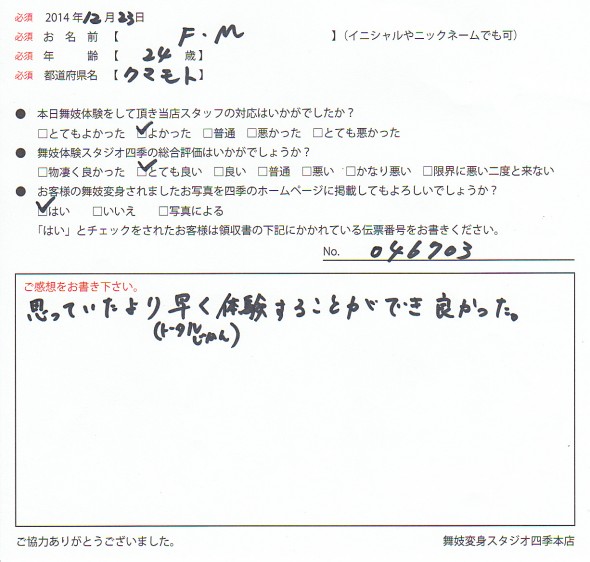 必須 2014年12月23日
必須 お名前【 F.M 】(イニシャルやニックネームでも可)
必須 年齢【 24 歳】
必須 都道府県名【クマモト】
● 本日舞妓体験をして頂き当店スタッフの対応はいかがでしたか?
□とてもよかった ☑よかった □普通 □悪かった □とても悪かった
● 舞妓体験スタジオ四季の総合評価はいかがでしょうか?
□物凄く良かった ☑とても良い □良い □普通 □悪い □かなり悪い □限界に悪い二度と来ない
● お客様の舞妓変身されましたお写真を四季のホームページに掲載してもよろしいでしょうか?
☑はい □いいえ □写真による
「はい」とチェックをされたお客様は領収書の下記にかかれている伝票番号をお書きください。
No. 046703
ご感想をお書き下さい。
思っていたより早く体験することができ良かった。
(トータルじかん)
ご協力ありがとうございました。 舞妓変身スタジオ四季本店